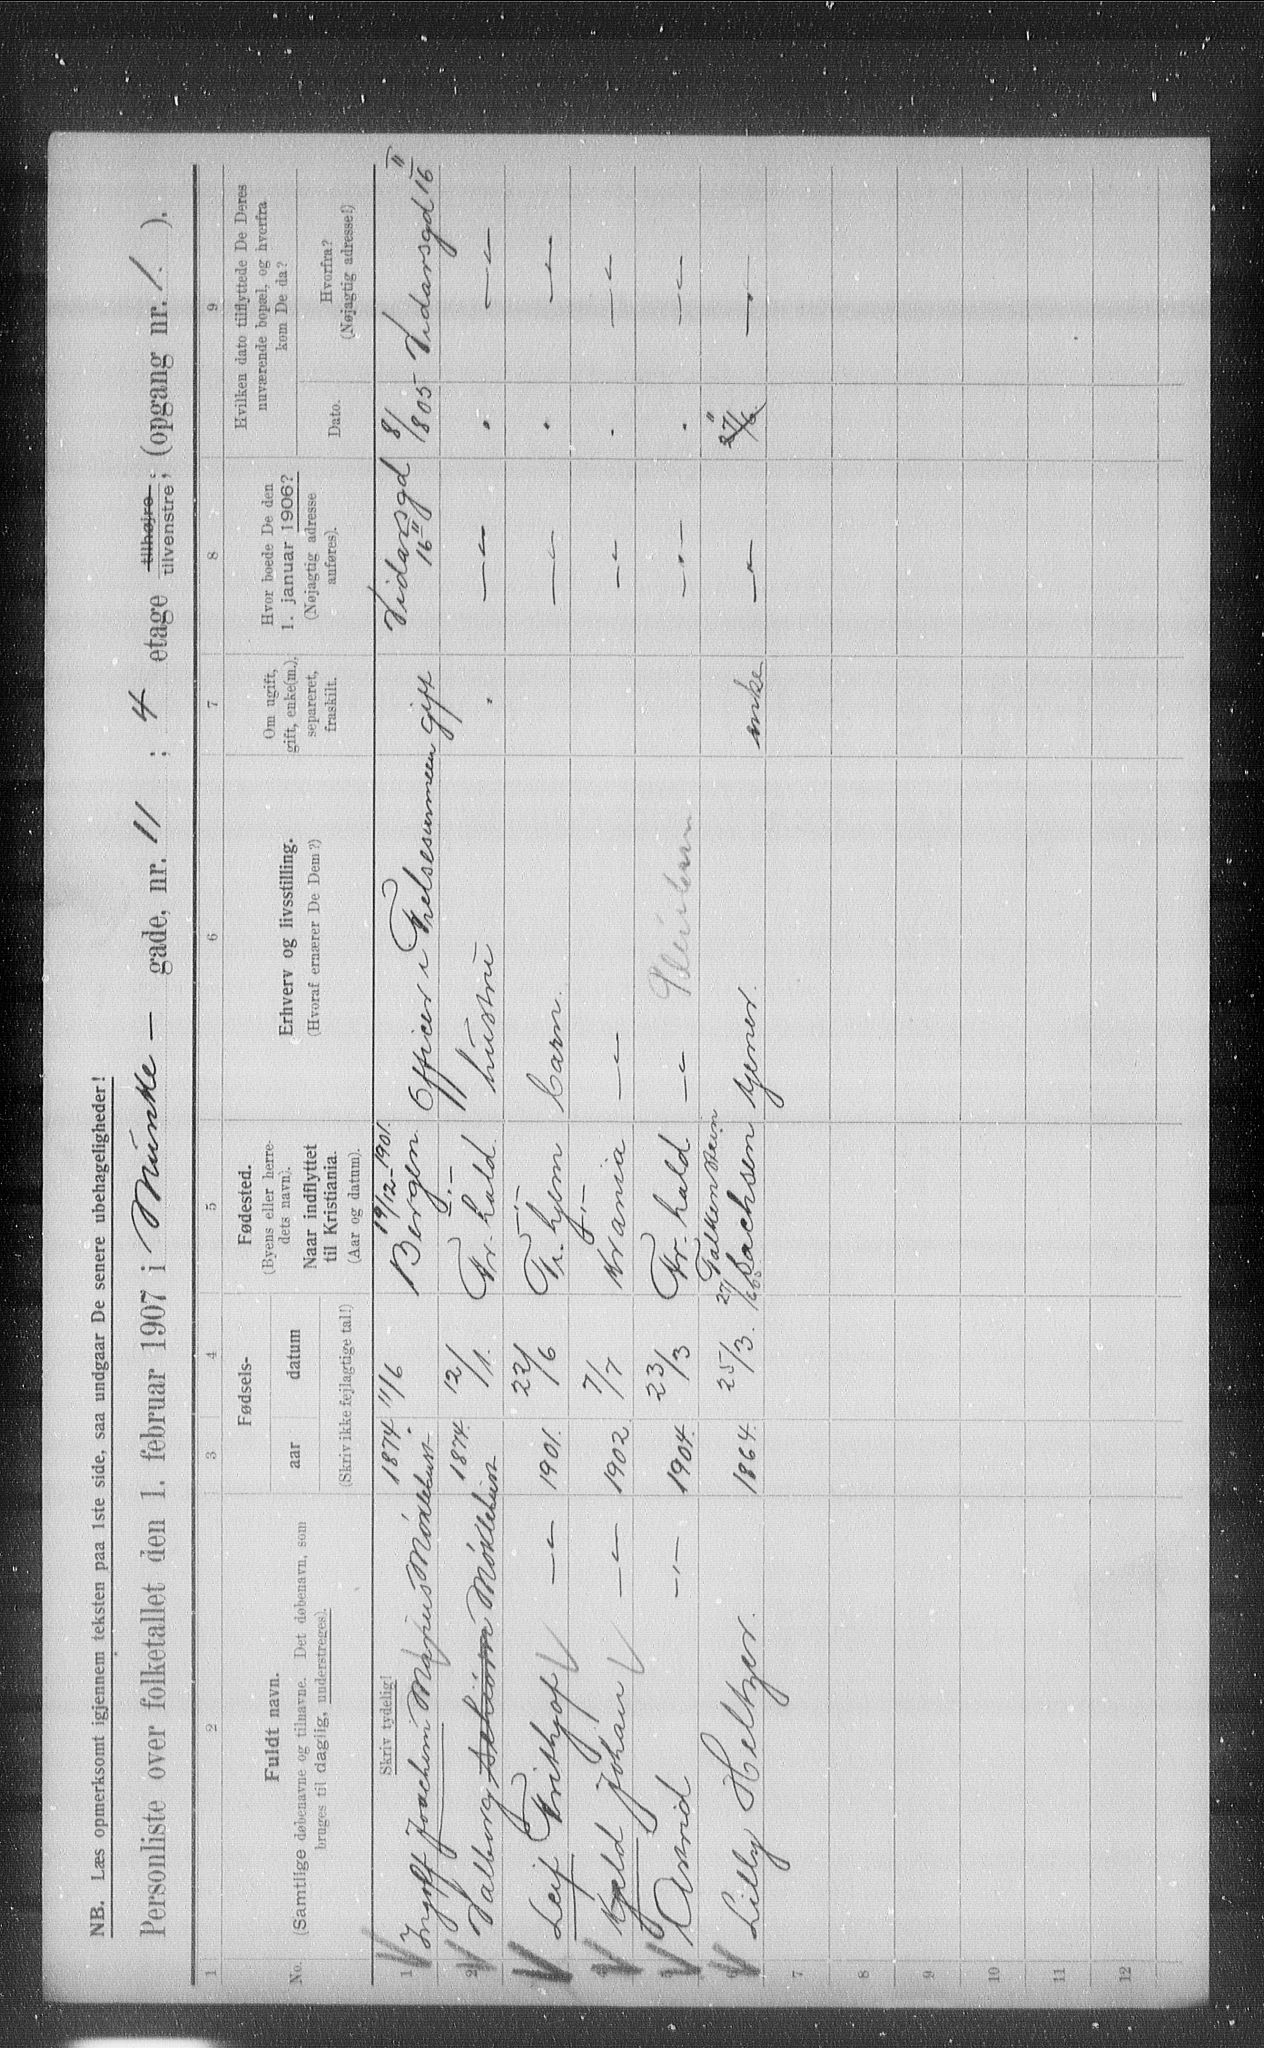 NB. Læs opmerksomt igjennem teksten paa 1ste side, saa undgaar De senere ubehageligheder!
Personliste over folketallet den 1. februar 1907 i Munke — gade, nr. 11 ; 4 etage tilhøjre tilvenstre; (opgang nr. 1. ).
1 2 3 4 5 6 7 8 9
No.
Fuldt navn.
(Samtlige døbenavne og tilnavne. Det døbenavn, som
bruges til daglig, understreges).
Skriv tydelig!
Fødsels-
aar datum
(Skriv ikke fejlagtige tal!)
Fødested.
(Byens eller herre-
dets navn).
Naar indflyttet
til Kristiania
(Aar og datum).
Erhverv og livsstilling.
(Hvoraf ernærer De Dem?)
Om ugift,
gift, enke(m.),
separeret,
fraskilt.
Hvor boede De den
1. januar 1906?
(Nøjagtig adresse
anføres).
Hvilken dato tilflyttede De Deres
nuværende bopæl, og hvorfra
kom De da?
Dato.
Hvorfra?
(Nøjagtig adresse!)
19/12-1901.
1 Ingolf Joachim Marius Møklebust 1874 11/6 Bergen Officer i Frelsesarmeen gift Vidarsgd 16 II 8/8 05 Vidarsgd 16 II
2 Valborg Møklebust 1874. 12/1. Fr.hald. hustru . —"— . —"—
3 Leif Frithjof —"— 1901. 22/6 Tr.hjem barn. —"— . —"—
4 Kjeld Johan —"— 1902. 7/7 Krania —"— —"— . —"—
5 Arvid —"— 1904. 23/3 Fr.hald —"— —"— . —"—
Falkenstein
6 Lilly Heltzer. 1864. 25/3. 27/6 05 Sachsen tjener. enke —"— 27/6 " —"—
7
8
9
10
11
12